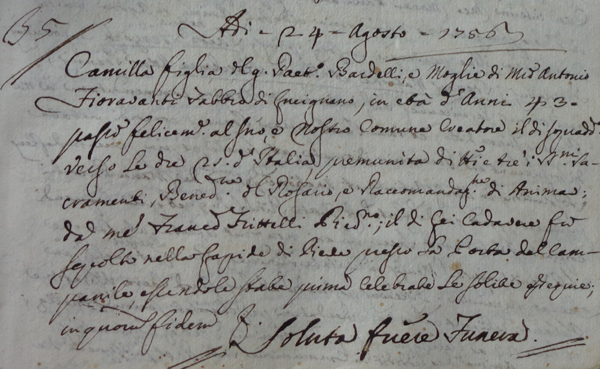 55
Adi - 24 - Agosto - 1756
Camilla figlia del q. Gaet.o Bardelli, e Moglie di M.ro Antonio
Fioravanti Fabbro di Lucignano, in età d'Anni 43 -
passò felicem.e al suo, e Nostro Comune Creatore il di sopradd.o
verso le Ore 21. d'Italia, premunita di tutti e trè i SS.mi Sa-
cramenti, Bened.ne del Rosario, e Raccomandaz.ne di Anima;
da me Franc.o Frittelli; il di Lei Cadavere fù
sepolto nella Lapide di Piede presso La Porta del Cam-
panile, essendole state prima celebrate Le solite esequie;
in quorum fidem
Soluta fuere Funera.